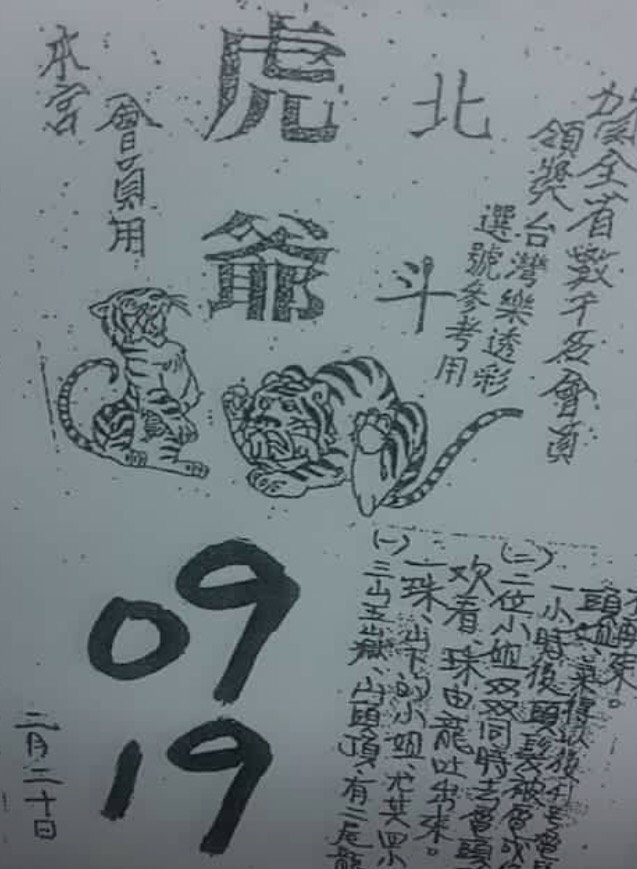 賀全省數千名會員
領獎
台灣樂透彩
選號參考用
北斗
虎爺
會員用
本宮
09
19
二月二十日
(一)三山五嶽、山頭頂、有二尾龍
一珠、山下的小姐、尤其四小
欢看、珠由龍吐出來。
(二)二位小姐双双同時去電頭
一小時後頭髮被電
頭